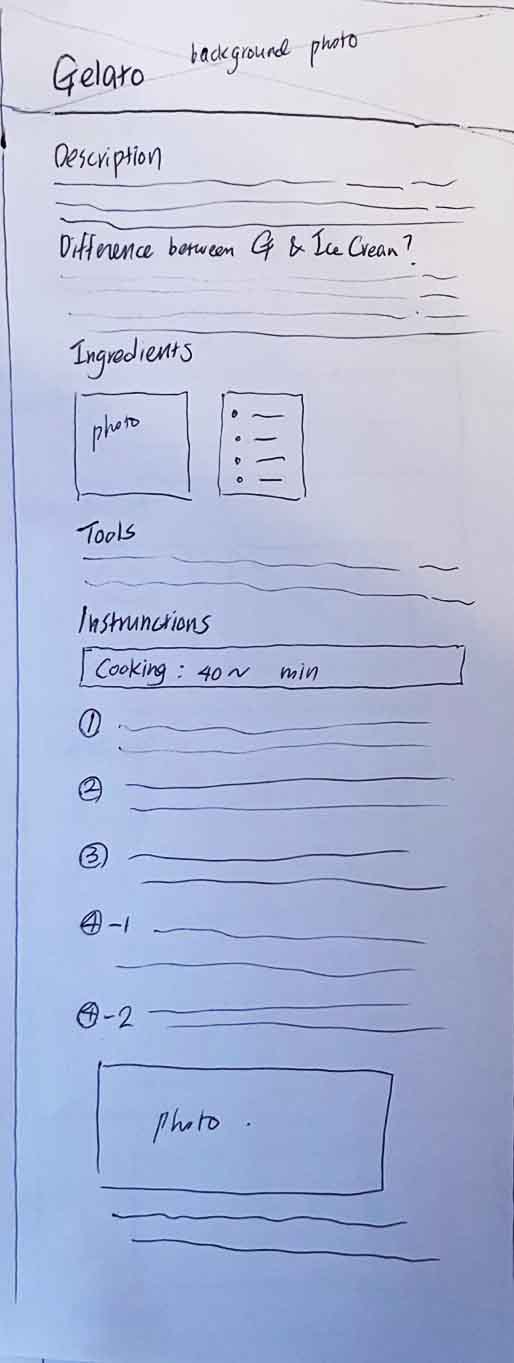 background photo
Gelato
Description
Difference between G & Ice Crean?
Ingredients
photo
Tools
Instrunctions
Cooking : 40~ min
①
②
③
④-1
④-2
photo.